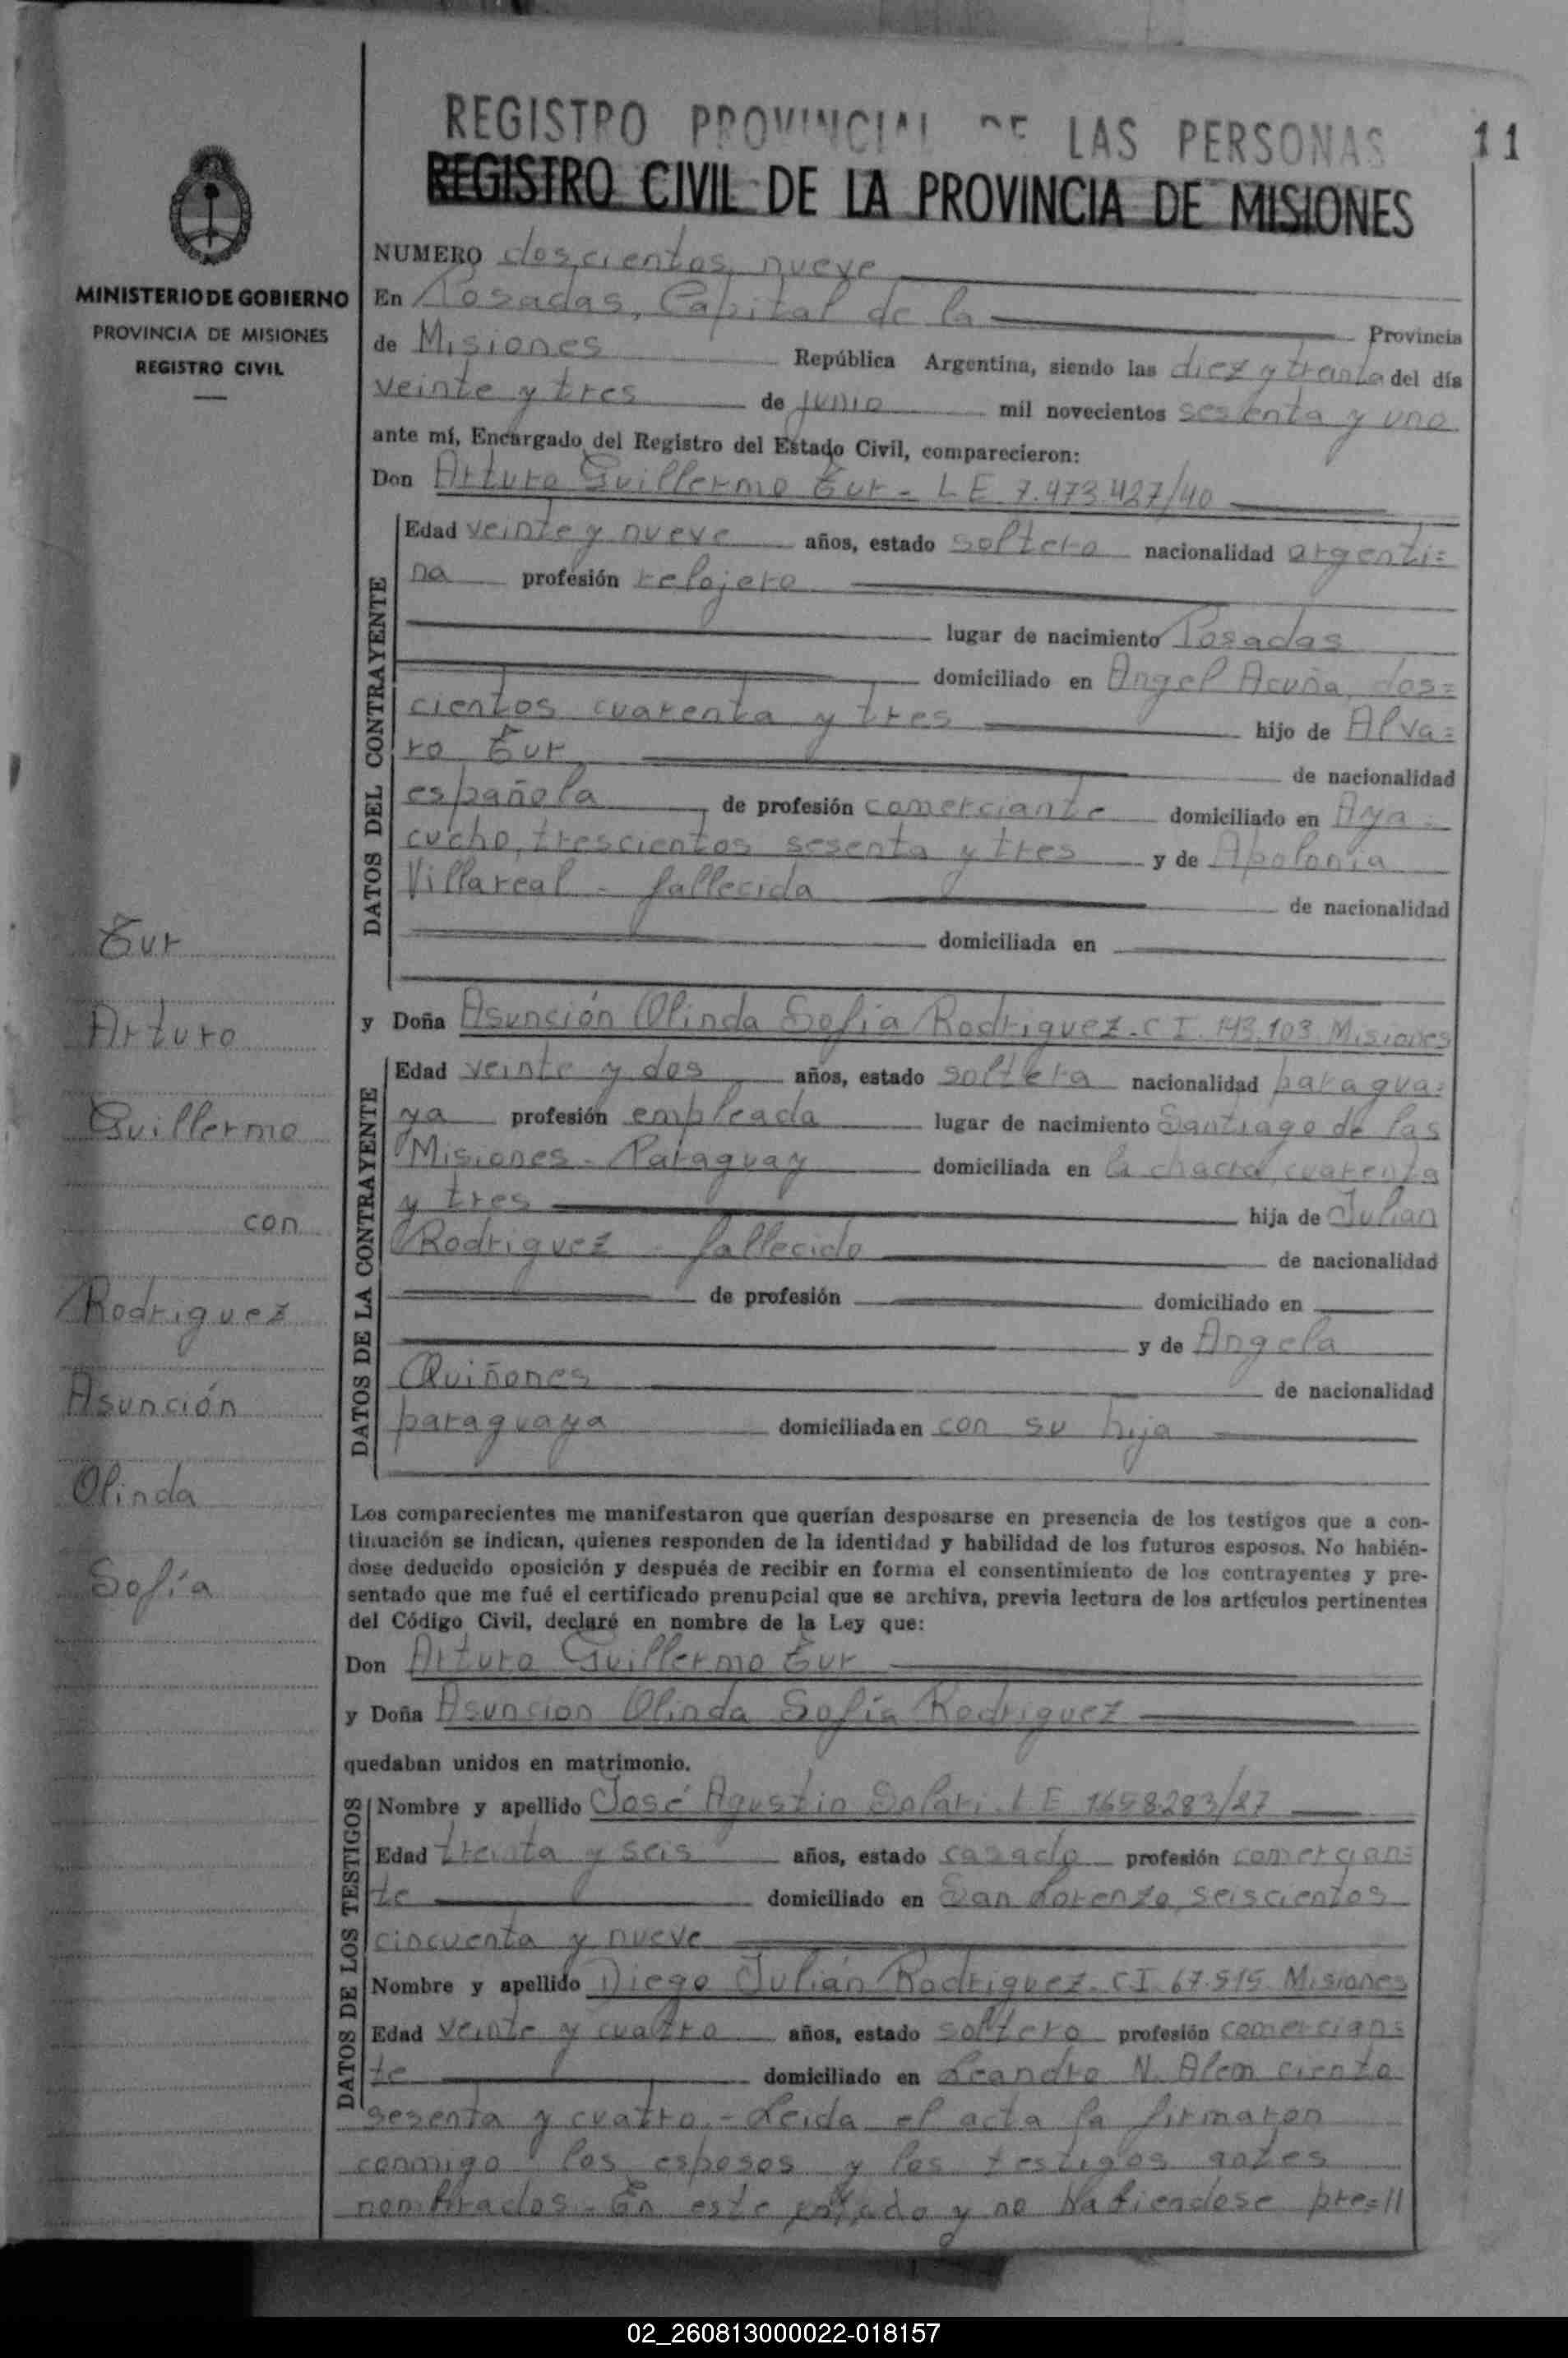 REGISTRO PROVINCIAL DE LAS PERSONAS 11
REGISTRO CIVIL DE LA PROVINCIA DE MISIONES
MINISTERIO DE GOBIERNO
PROVINCIA DE MISIONES
REGISTRO CIVIL
Eur
Arturo
Guillermo
con
Rodriguez
Asunción
Olinda
Sofía
NUMERO doscientos nueve
En Posadas, Capital de la Provincia
de Misiones República Argentina, siendo las diez y treinta del día
veinte y tres de junio mil novecientos sesenta y uno
ante mí, Encargado del Registro del Estado Civil, comparecieron:
Don Arturo Guillermo Eur - L E 7.473.427/40
DATOS DEL CONTRAYENTE
Edad veinte y nueve años, estado soltero nacionalidad argenti=
na profesión relojero
lugar de nacimiento Posadas
domiciliado en Angel Acuña, dos=
cientos cuarenta y tres hijo de Alva=
ro Eur de nacionalidad
española de profesión comerciante domiciliado en Aya=
cucho, trescientos sesenta y tres y de Apolonia
Villareal - fallecida de nacionalidad
domiciliada en
y Doña Asunción Olinda Sofía Rodriguez - C I. 143.103 Misiones
DATOS DE LA CONTRAYENTE
Edad veinte y dos años, estado soltera nacionalidad paragua=
ya profesión empleada lugar de nacimiento Santiago de las
Misiones - Paraguay domiciliada en la chacra cuarenta
y tres hija de Julian
Rodriguez - fallecido de nacionalidad
de profesión domiciliado en
y de Angela
Quiñones de nacionalidad
paraguaya domiciliada en con su hija
Los comparecientes me manifestaron que querían desposarse en presencia de los testigos que a con-
tinuación se indican, quienes responden de la identidad y habilidad de los futuros esposos. No habién-
dose deducido oposición y después de recibir en forma el consentimiento de los contrayentes y pre-
sentado que me fué el certificado prenupcial que se archiva, previa lectura de los artículos pertinentes
del Código Civil, declaré en nombre de la Ley que:
Don Arturo Guillermo Eur
y Doña Asuncion Olinda Sofía Rodriguez
quedaban unidos en matrimonio.
DATOS DE LOS TESTIGOS
Nombre y apellido José Agustin Solari L E 1658283/27
Edad treinta y seis años, estado casado profesión comercian=
te domiciliado en San Lorenzo, seiscientos
cincuenta y nueve
Nombre y apellido Diego Julián Rodriguez - C I. 67.515 Misiones
Edad veinte y cuatro años, estado soltero profesión comercian=
te domiciliado en Leandro N. Alem ciento
sesenta y cuatro.- Leida el acta la firmaron
conmigo los esposos y los testigos antes
nombrados.- En este estado y no habiendose pre=//
02_260813000022-018157